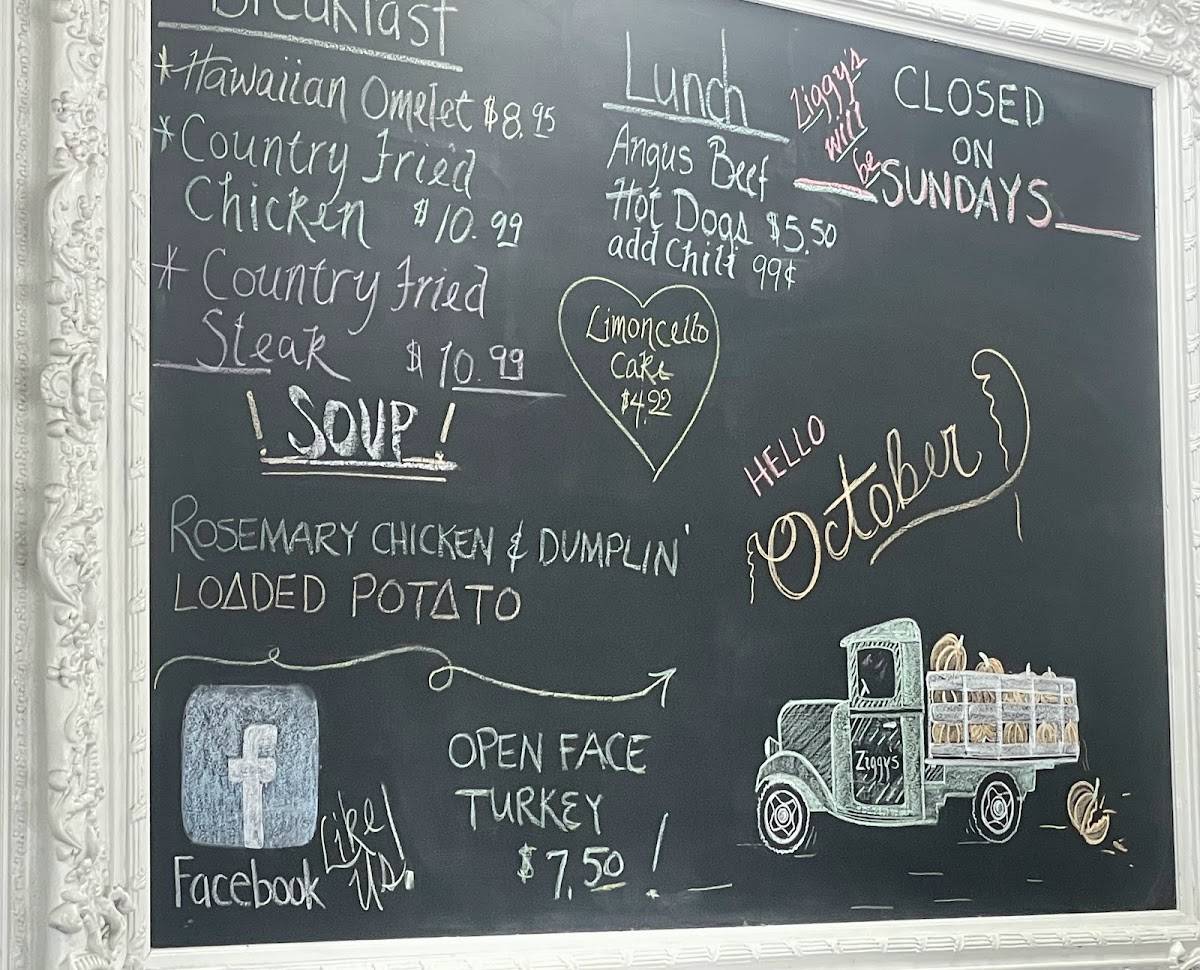 Breakfast
*Hawaiian Omelet $8.95
*Country Fried
Chicken $10.99
* Country Fried
Steak $10.99
Lunch
Angus Beef
Hot Dogs $5.50
add Chili 99¢
Ziggy's
will
be
CLOSED
ON
SUNDAYS
Limoncello
Cake
$4.99
! SOUP !
ROSEMARY CHICKEN & DUMPLIN'
LOADED POTATO
HELLO
October
f
Facebook
Like
Us!
OPEN FACE
TURKEY
$7.50 !
Ziggys